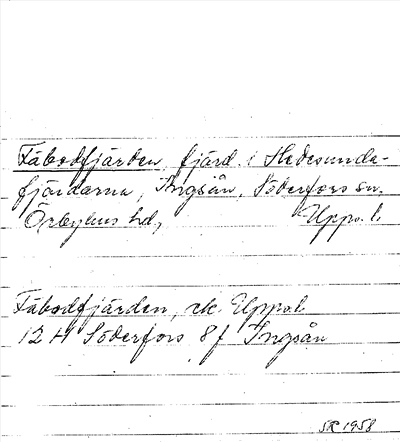 Fäbodfjärden, fjärd i Hedesunda-
fjärdarna, Ingsån, Söderfors sn.
Örbyhus hd, Upps.l.
Fäbodfjärden, ek. Upps.l.
12 H Söderfors 8 f Ingsån
SR 1958